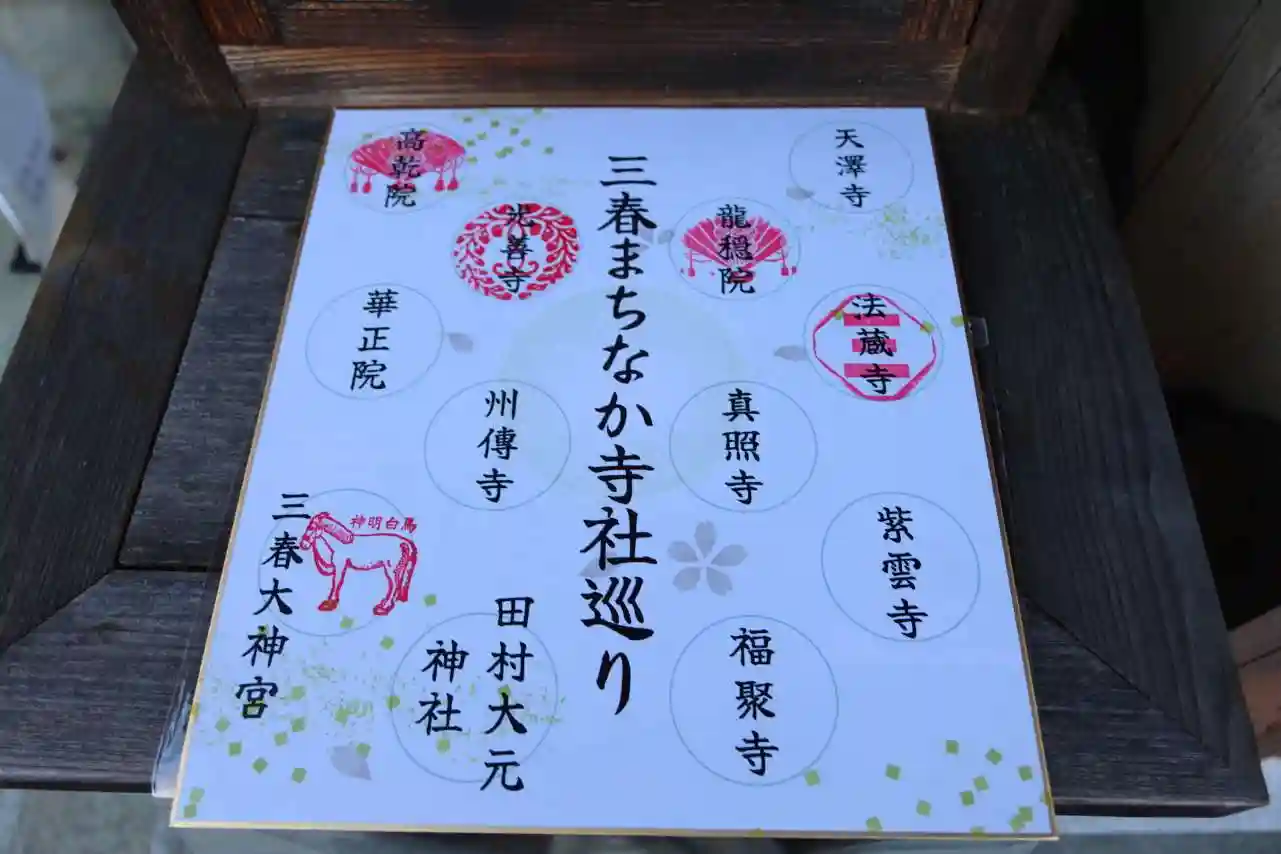 三春まちなか寺社巡り
天澤寺
龍穏院
法蔵寺
真照寺
紫雲寺
福聚寺
高乾院
光善寺
華正院
州傳寺
三春大神宮
神明白馬
田村大元
神社